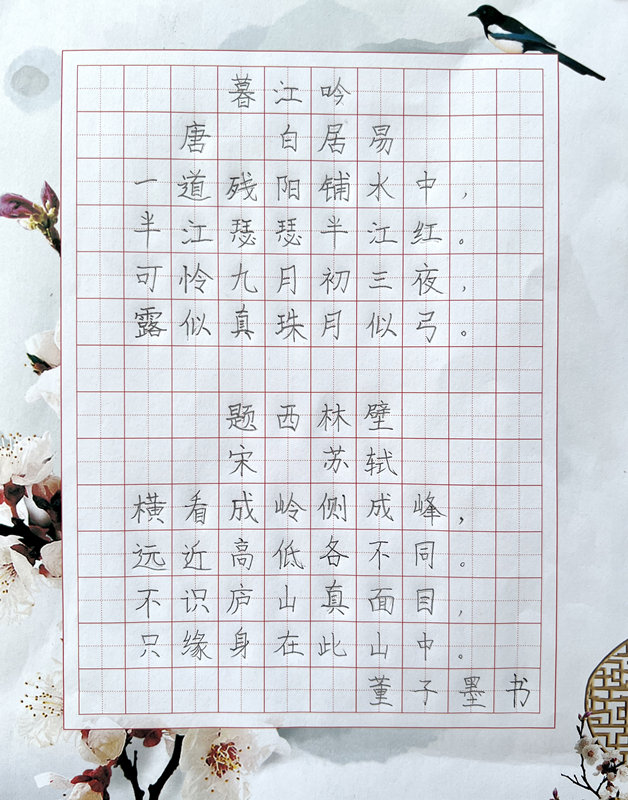 暮江吟
唐 白居易
一道残阳铺水中，
半江瑟瑟半江红。
可怜九月初三夜，
露似真珠月似弓。
题西林壁
宋 苏轼
横看成岭侧成峰，
远近高低各不同。
不识庐山真面目，
只缘身在此山中。
董子墨书